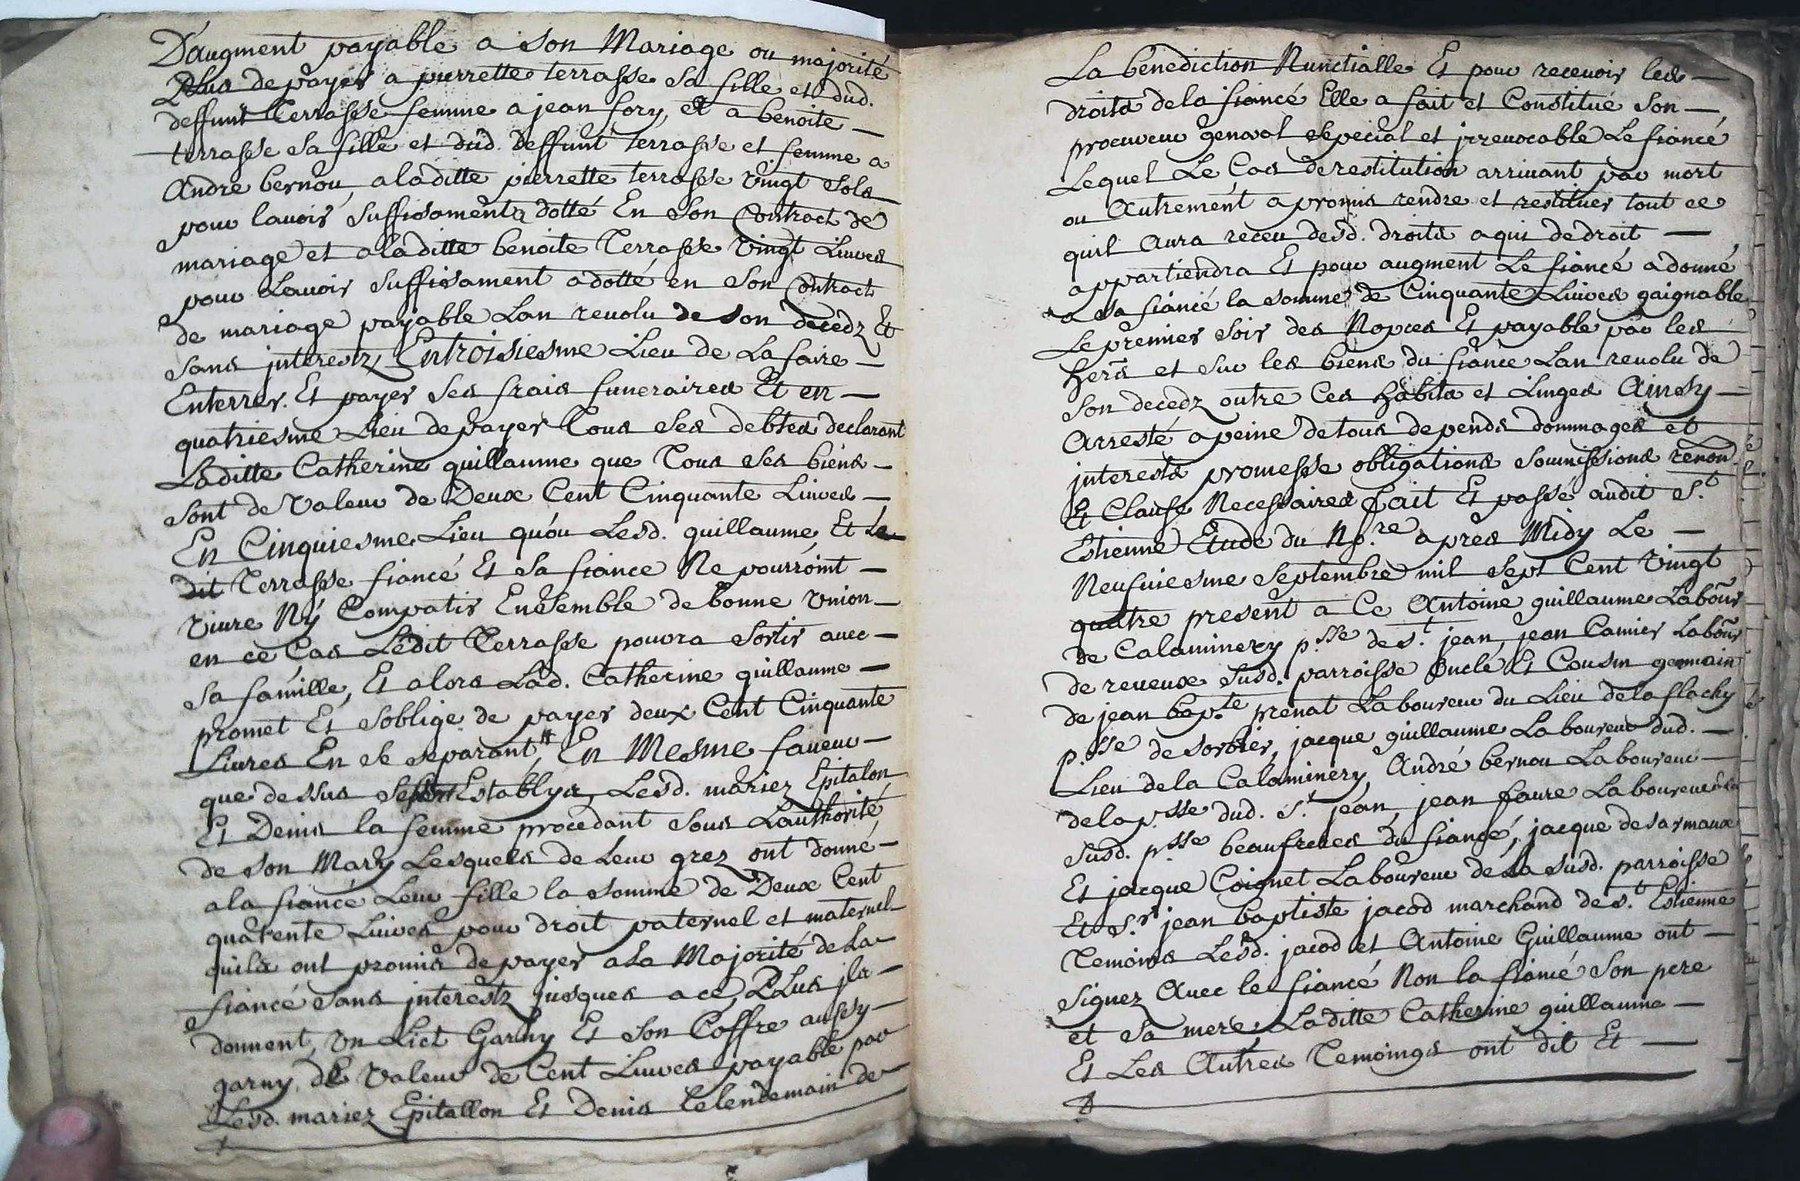 D'augment payable a son Mariage ou majorité
Plus de payer a pierrette terrasse sa fille et dud.
deffunt Terrasse femme a jean fory, et a benoite
terrasse sa fille et dud. deffunt terrasse et femme a
André bernou, a laditte pierrette terrasse vingt sols
pour lavoir suffisament dotté En son Contract de
mariage et a laditte benoite Terrasse vingt Livres
pour Lavoir suffisament adotté en son Contract
de mariage payable Lan revolu de son decedz Et
sans interestz, Entroisiesme Lieu de La faire
Enterrer Et payer ses frais funeraires Et en
quatriesme Lieu de payer Tous ses debtes declarant
Laditte Catherine guillaume que Tous ses biens
sont de valeur de Deux Cent Cinquante Livres
En Cinquiesme Lieu qu'ou Lesd. guillaume Et Le
dit Terrasse fiancé Et sa fiance Ne pourroint
vivre Ny Compatir Ensemble de bonne Union
en ce Cas Ledit Terrasse pourra sortir avec
sa famille, Et alors Lad. Catherine guillaume
promet Et soblige de payer deux Cent Cinquante
Livres En se separant, En Mesme faveur
que dessus Establys Lesd. mariez Epitalon
Et Denis la femme procedant sous Lauthorité
de son Mary Lesquels de Leur grez ont donné
a la fiancé Leur fille la somme de Deux Cent
quarente Livres pour droit paternel et maternel
quils ont promis de payer a la Majorité de La
fiancé sans interestz jusques a ce, Plus ils
donnent un Lict Garny Et son Coffre aussy
garny de valeur de Cent Livres payable par
Lesd. mariez Epitallon Et Denis Lelendemain de
La benediction Nunctialle Et pour recevoir les
droits de la fiancé Elle a fait et Constitué son
procureur general special et irrevocable Le fiancé
Lequel Le Cas de restitution arrivant par mort
ou Autrement a promis rendre et restituer tout ce
quil Aura receu desd. droits a qui de droit
appartiendra Et pour augment Le fiancé a donné
a sa fiancé la somme de Cinquante Livres gaignable
Le premier soir des Nopces Et payable par les
hers et sur les biens du fiancé Lan revolu de
son decedz outre Ces habits et Linges Ainsy
Arresté a peine de tous depends dommages et
interests promesse obligations soumissions renon.
Et Clause Necessaires fait Et passé audit St
Estienne Etude du Nore apres Midy Le
Neufviesme Septembre mil sept Cent vingt
quatre present a Ce Antoine guillaume Labour
de Calaminery psse de St jean, jean Camier Labour
de reveux susd. parroisse Oncle Et Cousin germain
de jean bapte prenat Laboureur du Lieu de la flachy
psse de sorbier, jacque guillaume Laboureur dud.
Lieu de la Calaminery André bernou Laboureur
de la psse dud. St jean, jean faure Laboureur
susd. psse beaufreres du fiancé, jacque desarmaux
Et jacque Coignet Laboureur de la susd. parroisse
Et Sr jean baptiste jacod marchand de St Estienne
Temoins Lesd. jacod et Antoine Guillaume ont
signez Avec le fiancé Non la fiancé Son pere
et sa mere Laditte Catherine guillaume
Et Les Autres Temoings ont dit Et